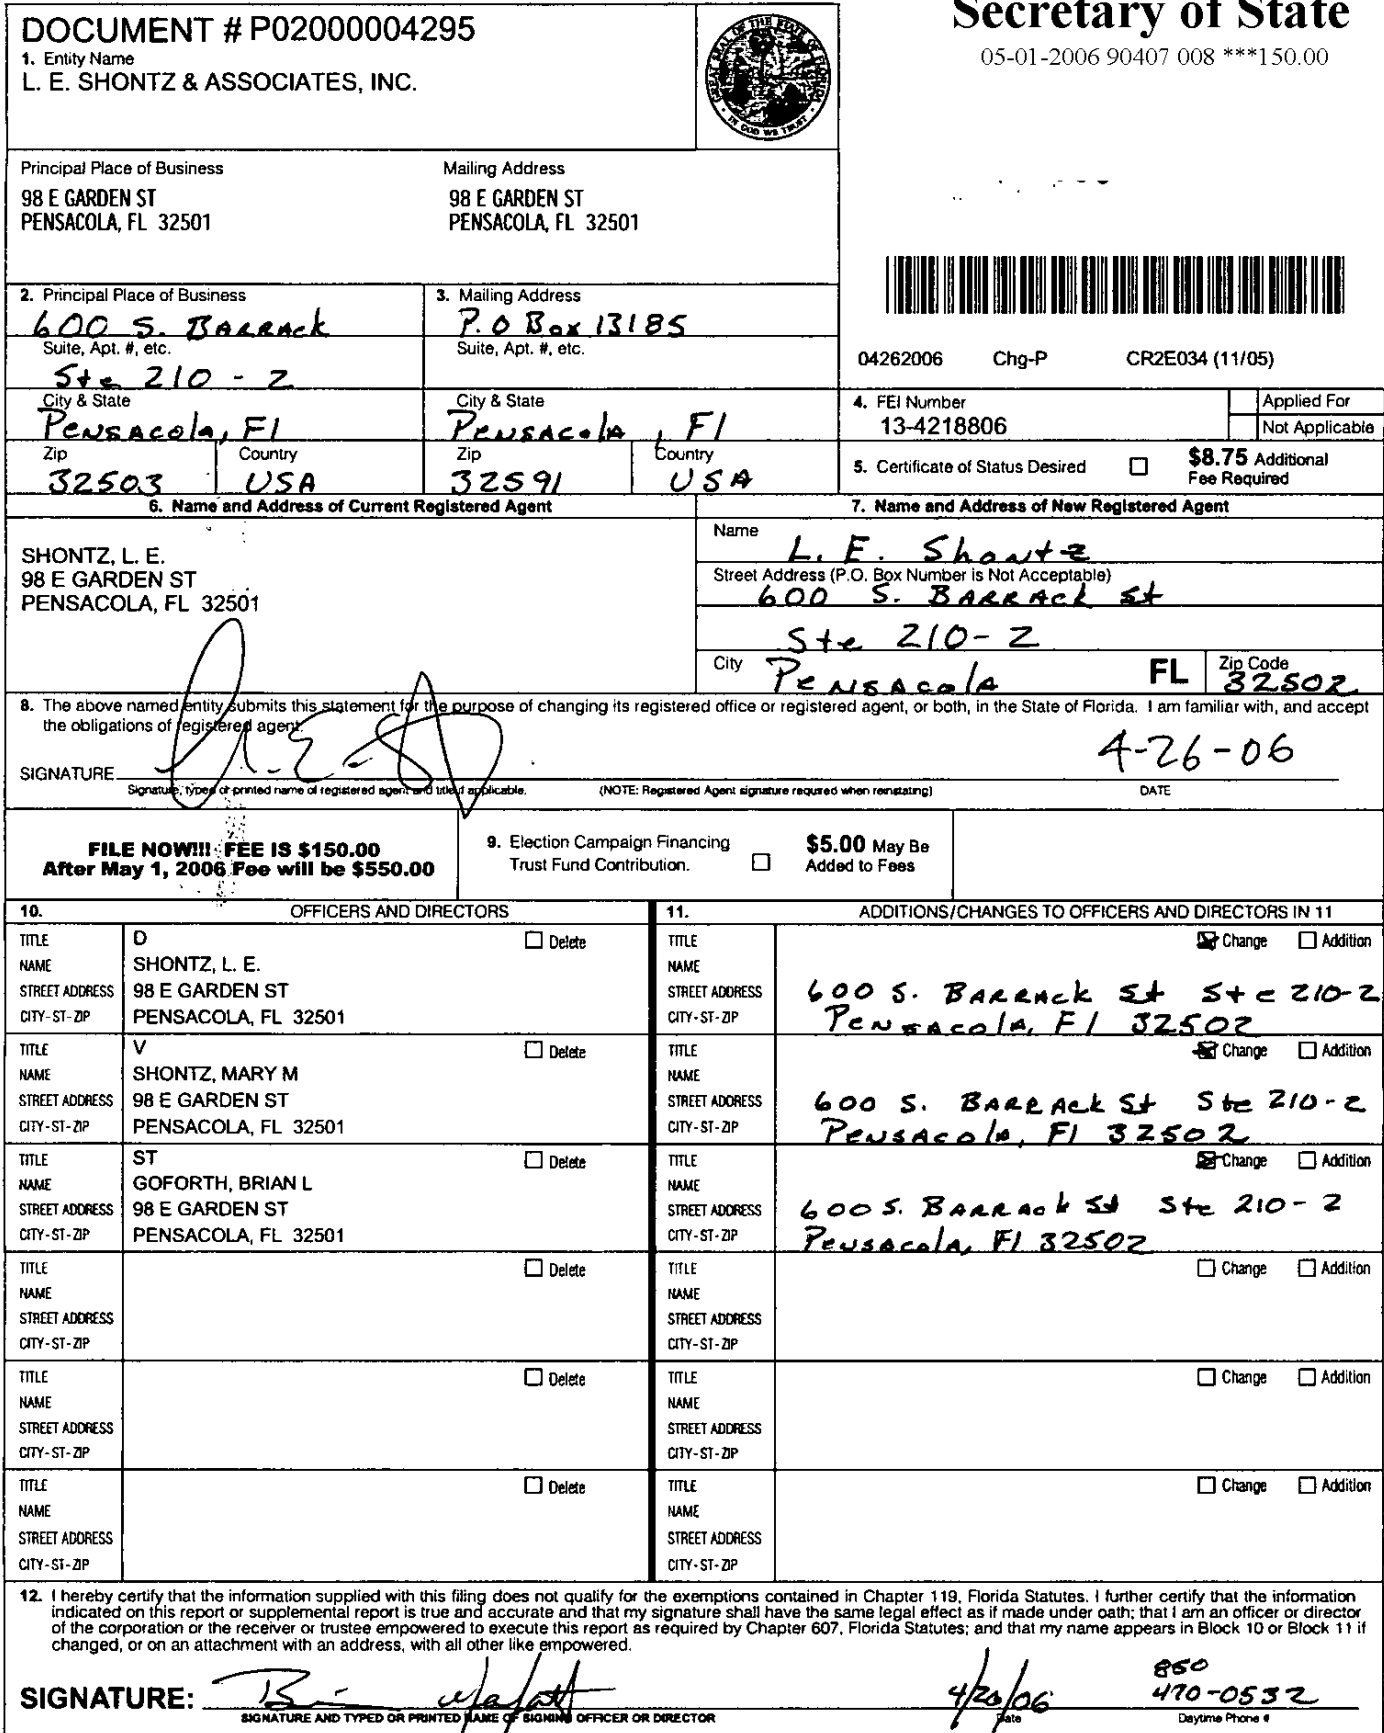 Secretary of State
05-01-2006 90407 008 ***150.00
DOCUMENT # P02000004295
1. Entity Name
L. E. SHONTZ & ASSOCIATES, INC.
GREAT SEAL OF THE STATE OF FLORIDA
IN GOD WE TRUST
Principal Place of Business
98 E GARDEN ST
PENSACOLA, FL 32501
Mailing Address
98 E GARDEN ST
PENSACOLA, FL 32501
2. Principal Place of Business
600 S. BARRACK
Suite, Apt. #, etc.
Ste 210 - 2
City & State
Pensacola, Fl
Zip
32503
Country
USA
3. Mailing Address
P.O Box 13185
Suite, Apt. #, etc.
City & State
Pensacola, Fl
Zip
32591
Country
USA
04262006 Chg-P CR2E034 (11/05)
4. FEI Number
13-4218806
Applied For
Not Applicable
5. Certificate of Status Desired
$8.75 Additional
Fee Required
6. Name and Address of Current Registered Agent
SHONTZ, L. E.
98 E GARDEN ST
PENSACOLA, FL 32501
7. Name and Address of New Registered Agent
Name
L. E. Shontz
Street Address (P.O. Box Number is Not Acceptable)
600 S. BARRACK St
Ste 210-2
City Pensacola FL Zip Code 32502
8. The above named entity submits this statement for the purpose of changing its registered office or registered agent, or both, in the State of Florida. I am familiar with, and accept
the obligations of registered agent.
SIGNATURE 4-26-06
Signature, typed or printed name of registered agent and title if applicable. (NOTE: Registered Agent signature required when reinstating) DATE
FILE NOW!!! FEE IS $150.00
After May 1, 2006 Fee will be $550.00
9. Election Campaign Financing
Trust Fund Contribution.
$5.00 May Be
Added to Fees
10. OFFICERS AND DIRECTORS
11. ADDITIONS/CHANGES TO OFFICERS AND DIRECTORS IN 11
TITLE D Delete
NAME SHONTZ, L. E.
STREET ADDRESS 98 E GARDEN ST
CITY-ST-ZIP PENSACOLA, FL 32501
TITLE Change Addition
NAME
STREET ADDRESS 600 S. BARRACK St Ste 210-2
CITY-ST-ZIP Pensacola, Fl 32502
TITLE V Delete
NAME SHONTZ, MARY M
STREET ADDRESS 98 E GARDEN ST
CITY-ST-ZIP PENSACOLA, FL 32501
TITLE Change Addition
NAME
STREET ADDRESS 600 S. BARRACK St Ste 210-2
CITY-ST-ZIP Pensacola, Fl 32502
TITLE ST Delete
NAME GOFORTH, BRIAN L
STREET ADDRESS 98 E GARDEN ST
CITY-ST-ZIP PENSACOLA, FL 32501
TITLE Change Addition
NAME
STREET ADDRESS 600 S. BARRACK St Ste 210-2
CITY-ST-ZIP Pensacola, Fl 32502
TITLE Delete
NAME
STREET ADDRESS
CITY-ST-ZIP
TITLE Change Addition
NAME
STREET ADDRESS
CITY-ST-ZIP
TITLE Delete
NAME
STREET ADDRESS
CITY-ST-ZIP
TITLE Change Addition
NAME
STREET ADDRESS
CITY-ST-ZIP
TITLE Delete
NAME
STREET ADDRESS
CITY-ST-ZIP
TITLE Change Addition
NAME
STREET ADDRESS
CITY-ST-ZIP
12. I hereby certify that the information supplied with this filing does not qualify for the exemptions contained in Chapter 119, Florida Statutes. I further certify that the information
indicated on this report or supplemental report is true and accurate and that my signature shall have the same legal effect as if made under oath; that I am an officer or director
of the corporation or the receiver or trustee empowered to execute this report as required by Chapter 607, Florida Statutes; and that my name appears in Block 10 or Block 11 if
changed, or on an attachment with an address, with all other like empowered.
850
SIGNATURE: 4/20/06 470-0532
SIGNATURE AND TYPED OR PRINTED NAME OF SIGNING OFFICER OR DIRECTOR Date Daytime Phone #